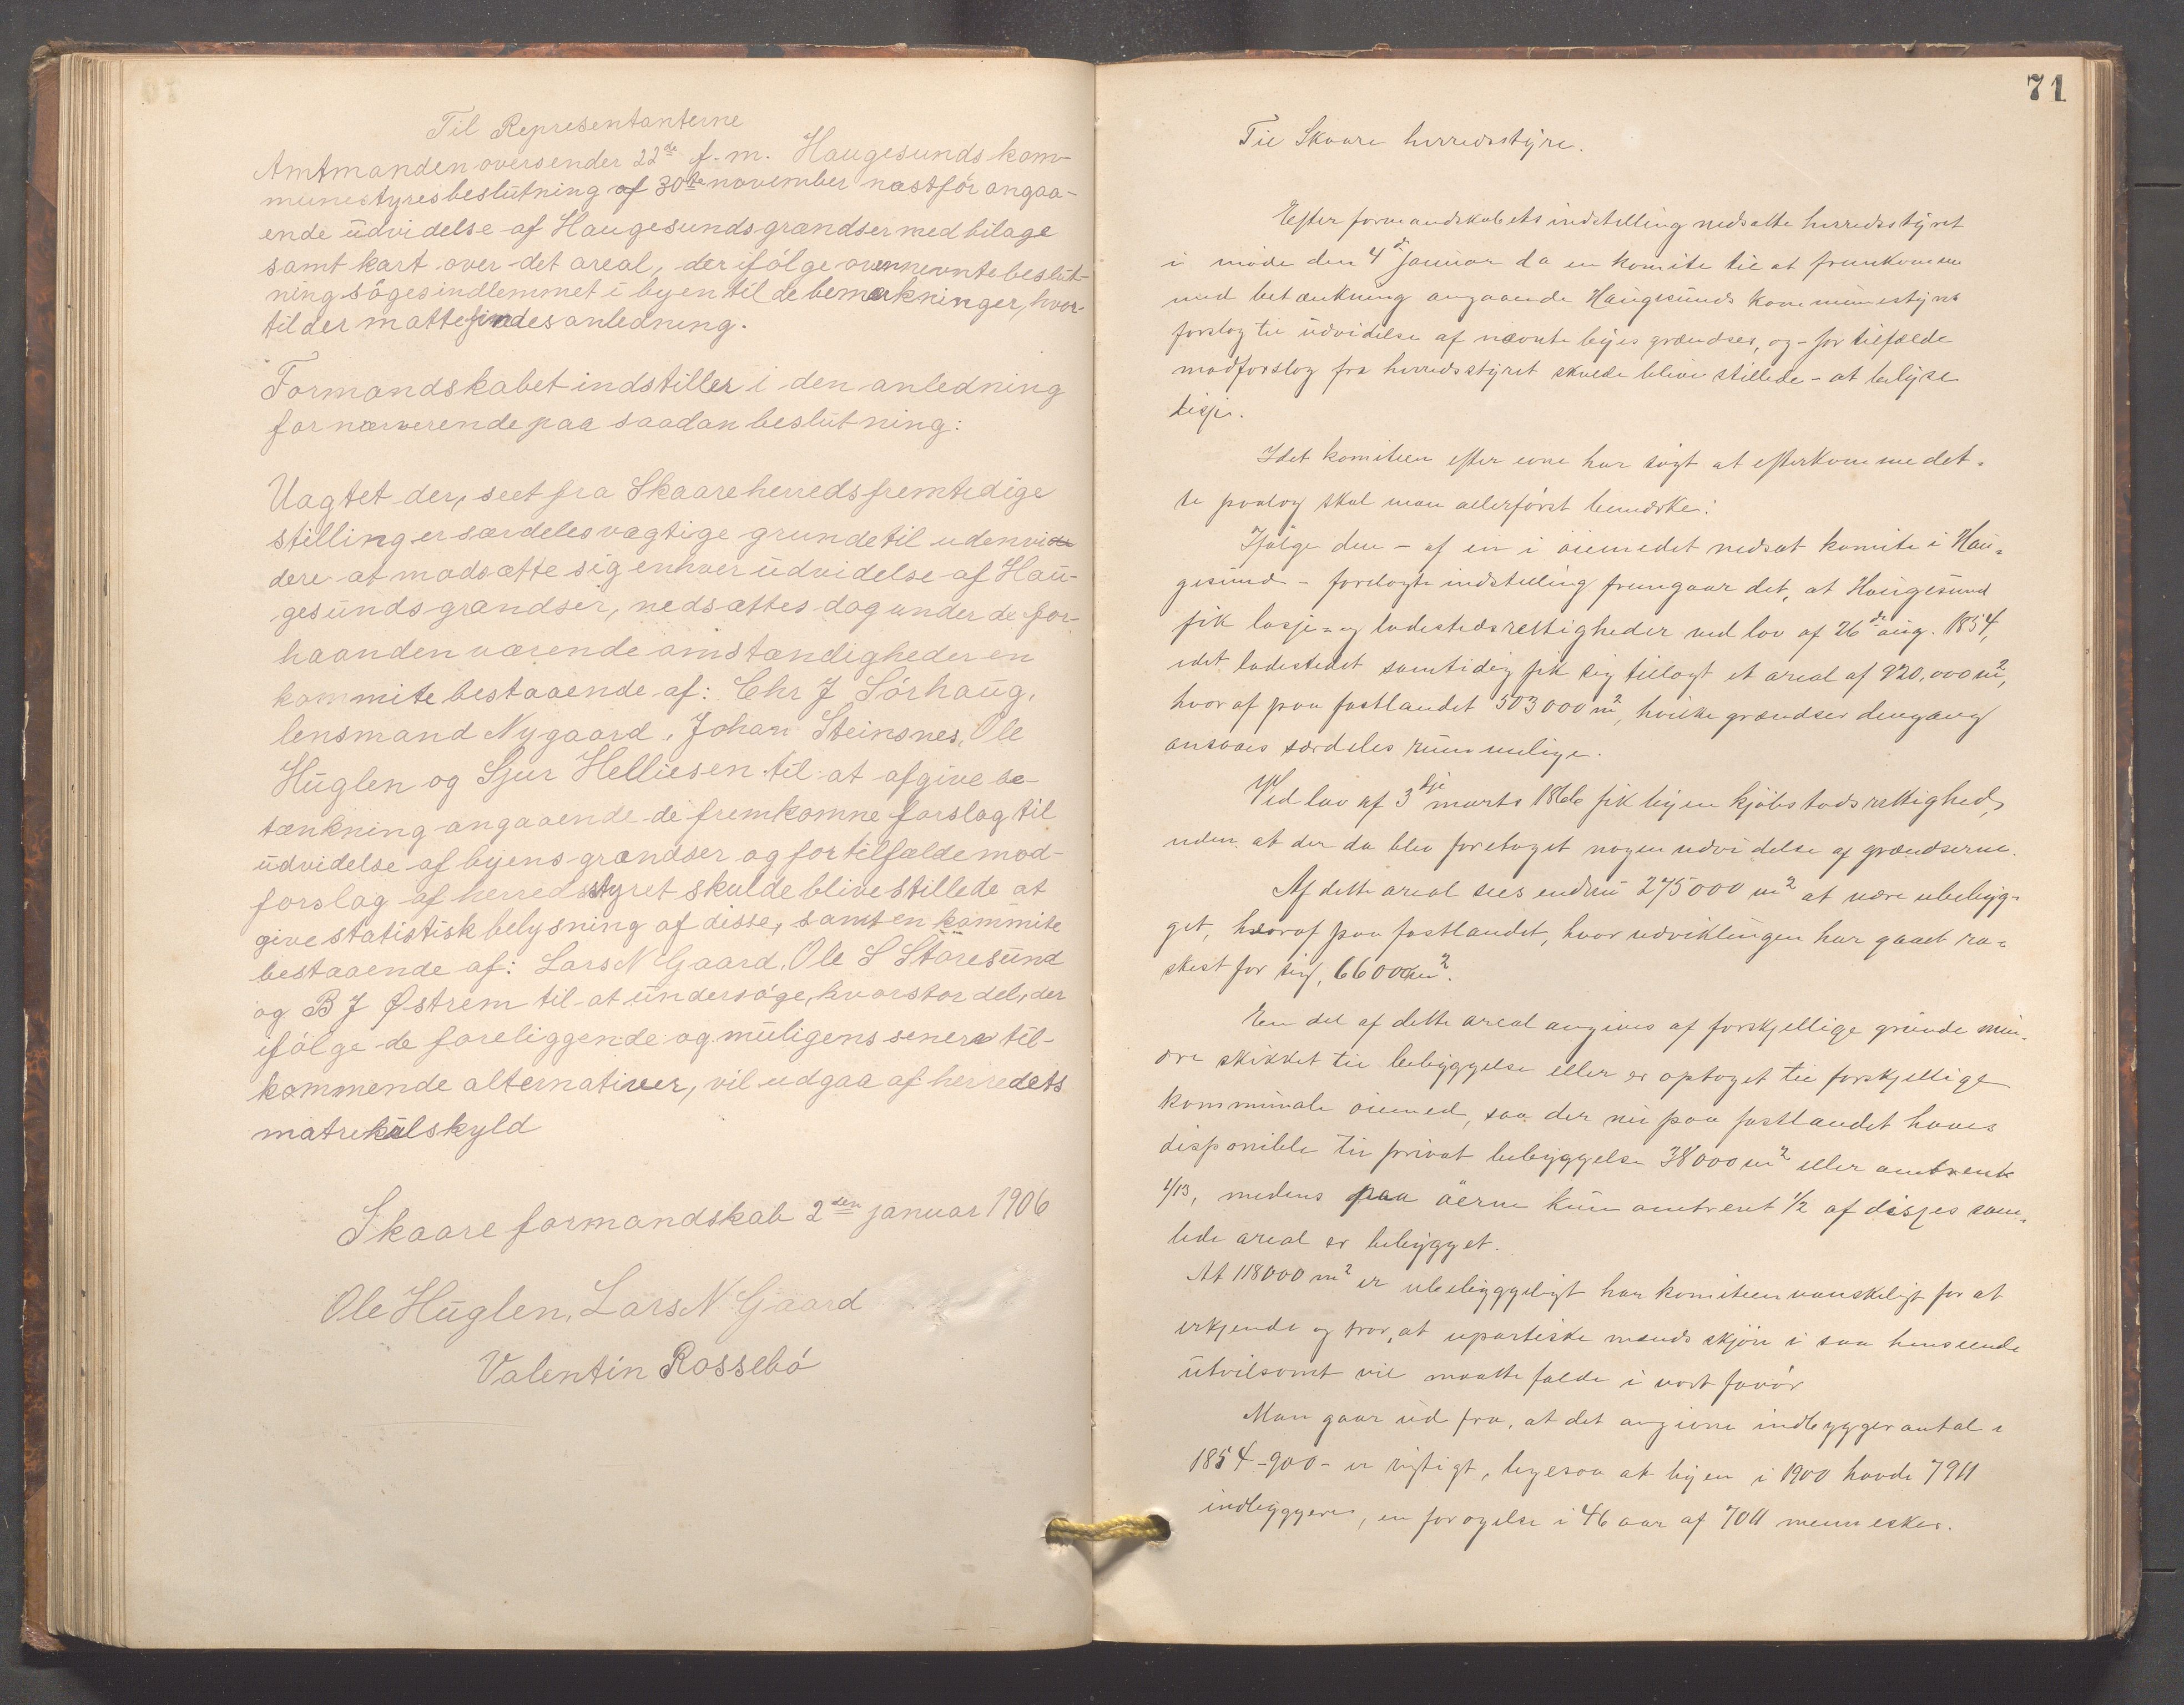 Til Representanterne
Amtmanden oversender 22de f.m. Haugesunds kom-
munestyres beslutning af 30te november næstfór angaa-
ende udvidelse af Haugesunds grændser med bilage
samt kart over det areal, der ifólge ovennevnte beslut-
ning sóges indlemmet i byen til de bemærkninger, hvor-
til der måtte findes anledning.
Formandskabet indstiller i den anledning
for nærverende paa saadan beslutning:
Uagtet der, seet fra Skaare herreds fremtidige
stilling er særdeles vægtige grunde til uden vi-
dere at modsætte sig enhver udvidelse af Hau-
gesunds grændser, nedsættes dog under de for-
haanden værende omstændigheder en
kommite bestaaende af: Chr J Sórhaug,
lensmand Nygaard, Johan Steinsnes, Ole
Huglen og Sjur Helliesen til at afgive be-
tænkning angaaende de fremkomne forslag til
udvidelse af byens grændser og for tilfælde mod-
forslag af herredsstyret skulde blive stillede at
give statistisk belysning af disse, samt en kommite
bestaaende af: Lars N Gaard, Ole S Storesund
og B J Østrem til at undersóge, hvor stor del, der
ifólge de foreliggende og muligens senere til-
kommende alternativer, vil udgaa af herredets
matrikulskyld
Skaare formandskab 2den januar 1906
Ole Huglen, Lars N Gaard
Valentin Rossebó
71
Til Skaare herredsstyre.
Efter formandskabets indstilling nedsatte herredsstyret
i møde den 4de januar da en komite til at fremkomme
med betænkning angaaende Haugesunds kommunestyres
forslag til udvidelse af nævnte byes grændser, og – for tilfælde
modforslag fra herredsstyret skulde blive stillede – at belyse
disse.
Idet komiteen efter evne har søgt at efterkomme det-
te paalæg skal man allerførst bemærke:
Ifølge den – af en i øiemedet nedsat komite i Hau-
gesund – forelagte indstilling fremgaar det, at Haugesund
fik losje- og ladestedsrettigheder ved lov af 26de aug. 1854,
idet ladestedet samtidig fik sig tillagt et areal af 920,000 m²,
hvoraf paa fastlandet 503000 m², hvilke grændser dengang
ansaaes særdeles rummelige.
Ved lov af 3dje marts 1866 fik byen kjøbstadsrettighed,
uden at der da blev foretaget nogen udvidelse af grændserne.
Af dette areal sees endnu 275000 m² at være ubebyg-
get, hvoraf paa fastlandet, hvor udviklingen har gaaet ra-
skest for sig, 66000 m².
En del af dette areal angives af forskjellige grunde min-
dre skikket til bebyggelse eller er optaget til forskjellige
kommunale øiemed, saa der nu paa fastlandet haves
disponible til privat bebyggelse 38000 m² eller omtrent
1/13, medens paa øerne kun omtrent 1/2 af disses sam-
lede areal er bebygget.
At 118000 m² er ubebyggeligt har komiteen vanskeligt for at
erkjende og tror, at upartiske mænds skjøn i saa henseende
utvilsomt vil maatte falde i vort favør
Man gaar ud fra, at det angivne indbyggerantal i
1854 – 900 – er rigtigt, ligesaa at byen i 1900 havde 7911
indbyggere, en forøgelse i 46 aar af 7011 mennesker.